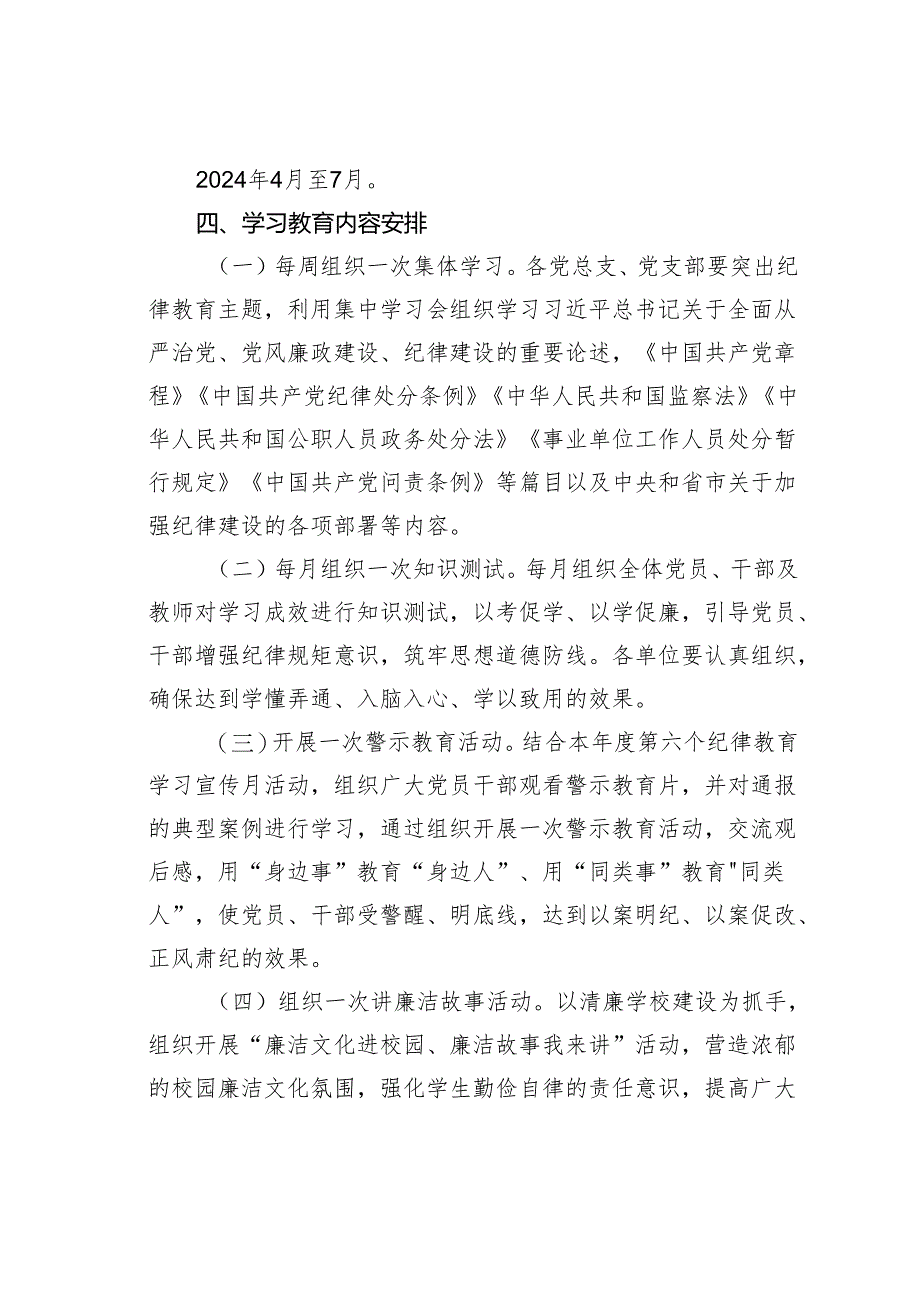 2024年4月至7月。
四、学习教育内容安排
（一）每周组织一次集体学习。各党总支、党支部要突出纪
律教育主题，利用集中学习会组织学习习近平总书记关于全面从
严治党、党风廉政建设、纪律建设的重要论述，《中国共产党章
程》《中国共产党纪律处分条例》《中华人民共和国监察法》《中
华人民共和国公职人员政务处分法》《事业单位工作人员处分暂
行规定》《中国共产党问责条例》等篇目以及中央和省市关于加
强纪律建设的各项部署等内容。
（二）每月组织一次知识测试。每月组织全体党员、干部及
教师对学习成效进行知识测试，以考促学、以学促廉，引导党员、
干部增强纪律规矩意识，筑牢思想道德防线。各单位要认真组织，
确保达到学懂弄通、入脑入心、学以致用的效果。
(三)开展一次警示教育活动。结合本年度第六个纪律教育
学习宣传月活动，组织广大党员干部观看警示教育片，并对通报
的典型案例进行学习，通过组织开展一次警示教育活动，交流观
后感，用“身边事”教育“身边人”、用“同类事”教育"同类
人”，使党员、干部受警醒、明底线，达到以案明纪、以案促改、
正风肃纪的效果。
（四）组织一次讲廉洁故事活动。以清廉学校建设为抓手，
组织开展“廉洁文化进校园、廉洁故事我来讲”活动，营造浓郁
的校园廉洁文化氛围，强化学生勤俭自律的责任意识，提高广大